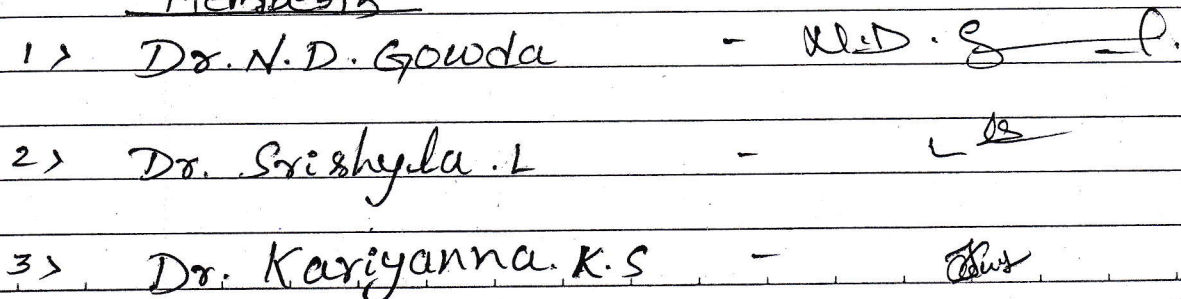 1> Dr. N. D. Gowda - N.D. G
2> Dr. Srishyla .L -
3> Dr. Kariyanna. K.S -